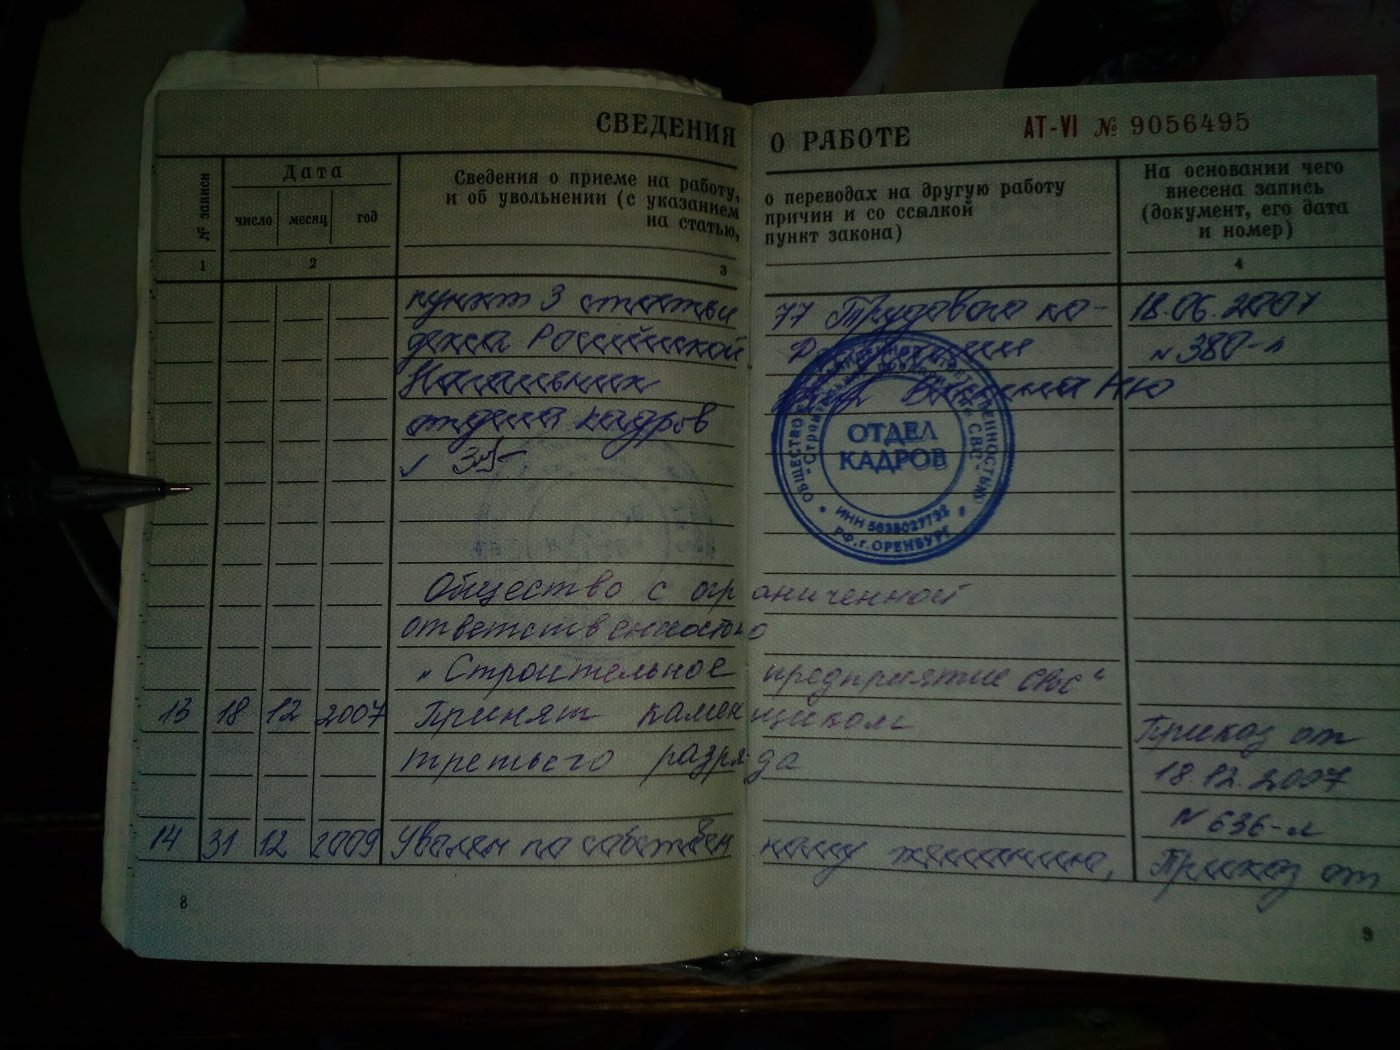 СВЕДЕНИЯ О РАБОТЕ АТ-VI № 9056495
№ записи
Дата
число месяц год
Сведения о приеме на работу, о переводах на другую работу
и об увольнении (с указанием причин и со ссылкой
на статью, пункт закона)
На основании чего
внесена запись
(документ, его дата
и номер)
1 2 3 4
пункт 3 статьи 77 Трудового ко- 18.06.2007
декса Российской Федерации №380-л
Начальник
отдела кадров
ОТДЕЛ
КАДРОВ
ИНН
РФ, г. ОРЕНБУРГ
Общество с ограниченной
ответственностью
"Строительное предприятие СВС"
13 18 12 2007 Принят каменщиком Приказ от
третьего разряда 18.12.2007
№ 636-л
14 31 12 2009 Уволен по собственному желанию, Приказ от
8 9